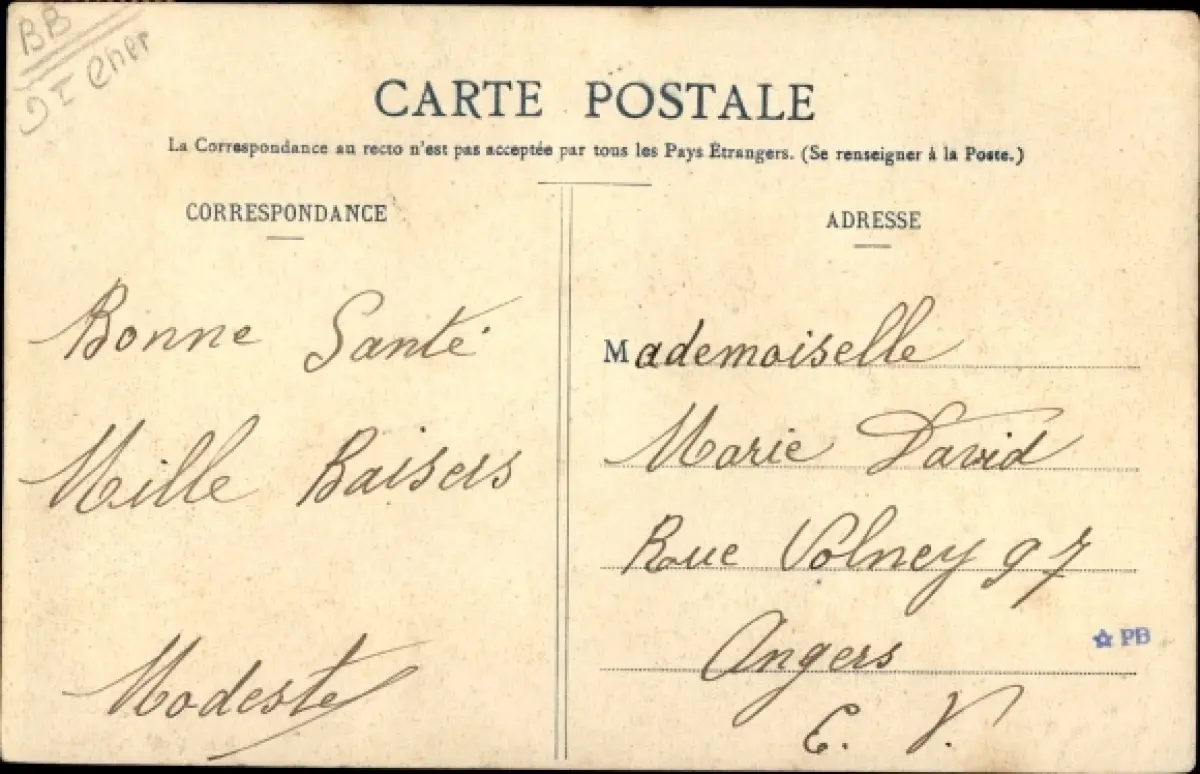 BB
CARTE POSTALE
La Correspondance au recto n'est pas acceptée par tous les Pays Étrangers. (Se renseigner à la Poste.)
CORRESPONDANCE
Bonne Santé
Mille Baisers
Modeste
ADRESSE
Mademoiselle
Marie David
Rue Volney 97
Angers
E. V.
☆ PB